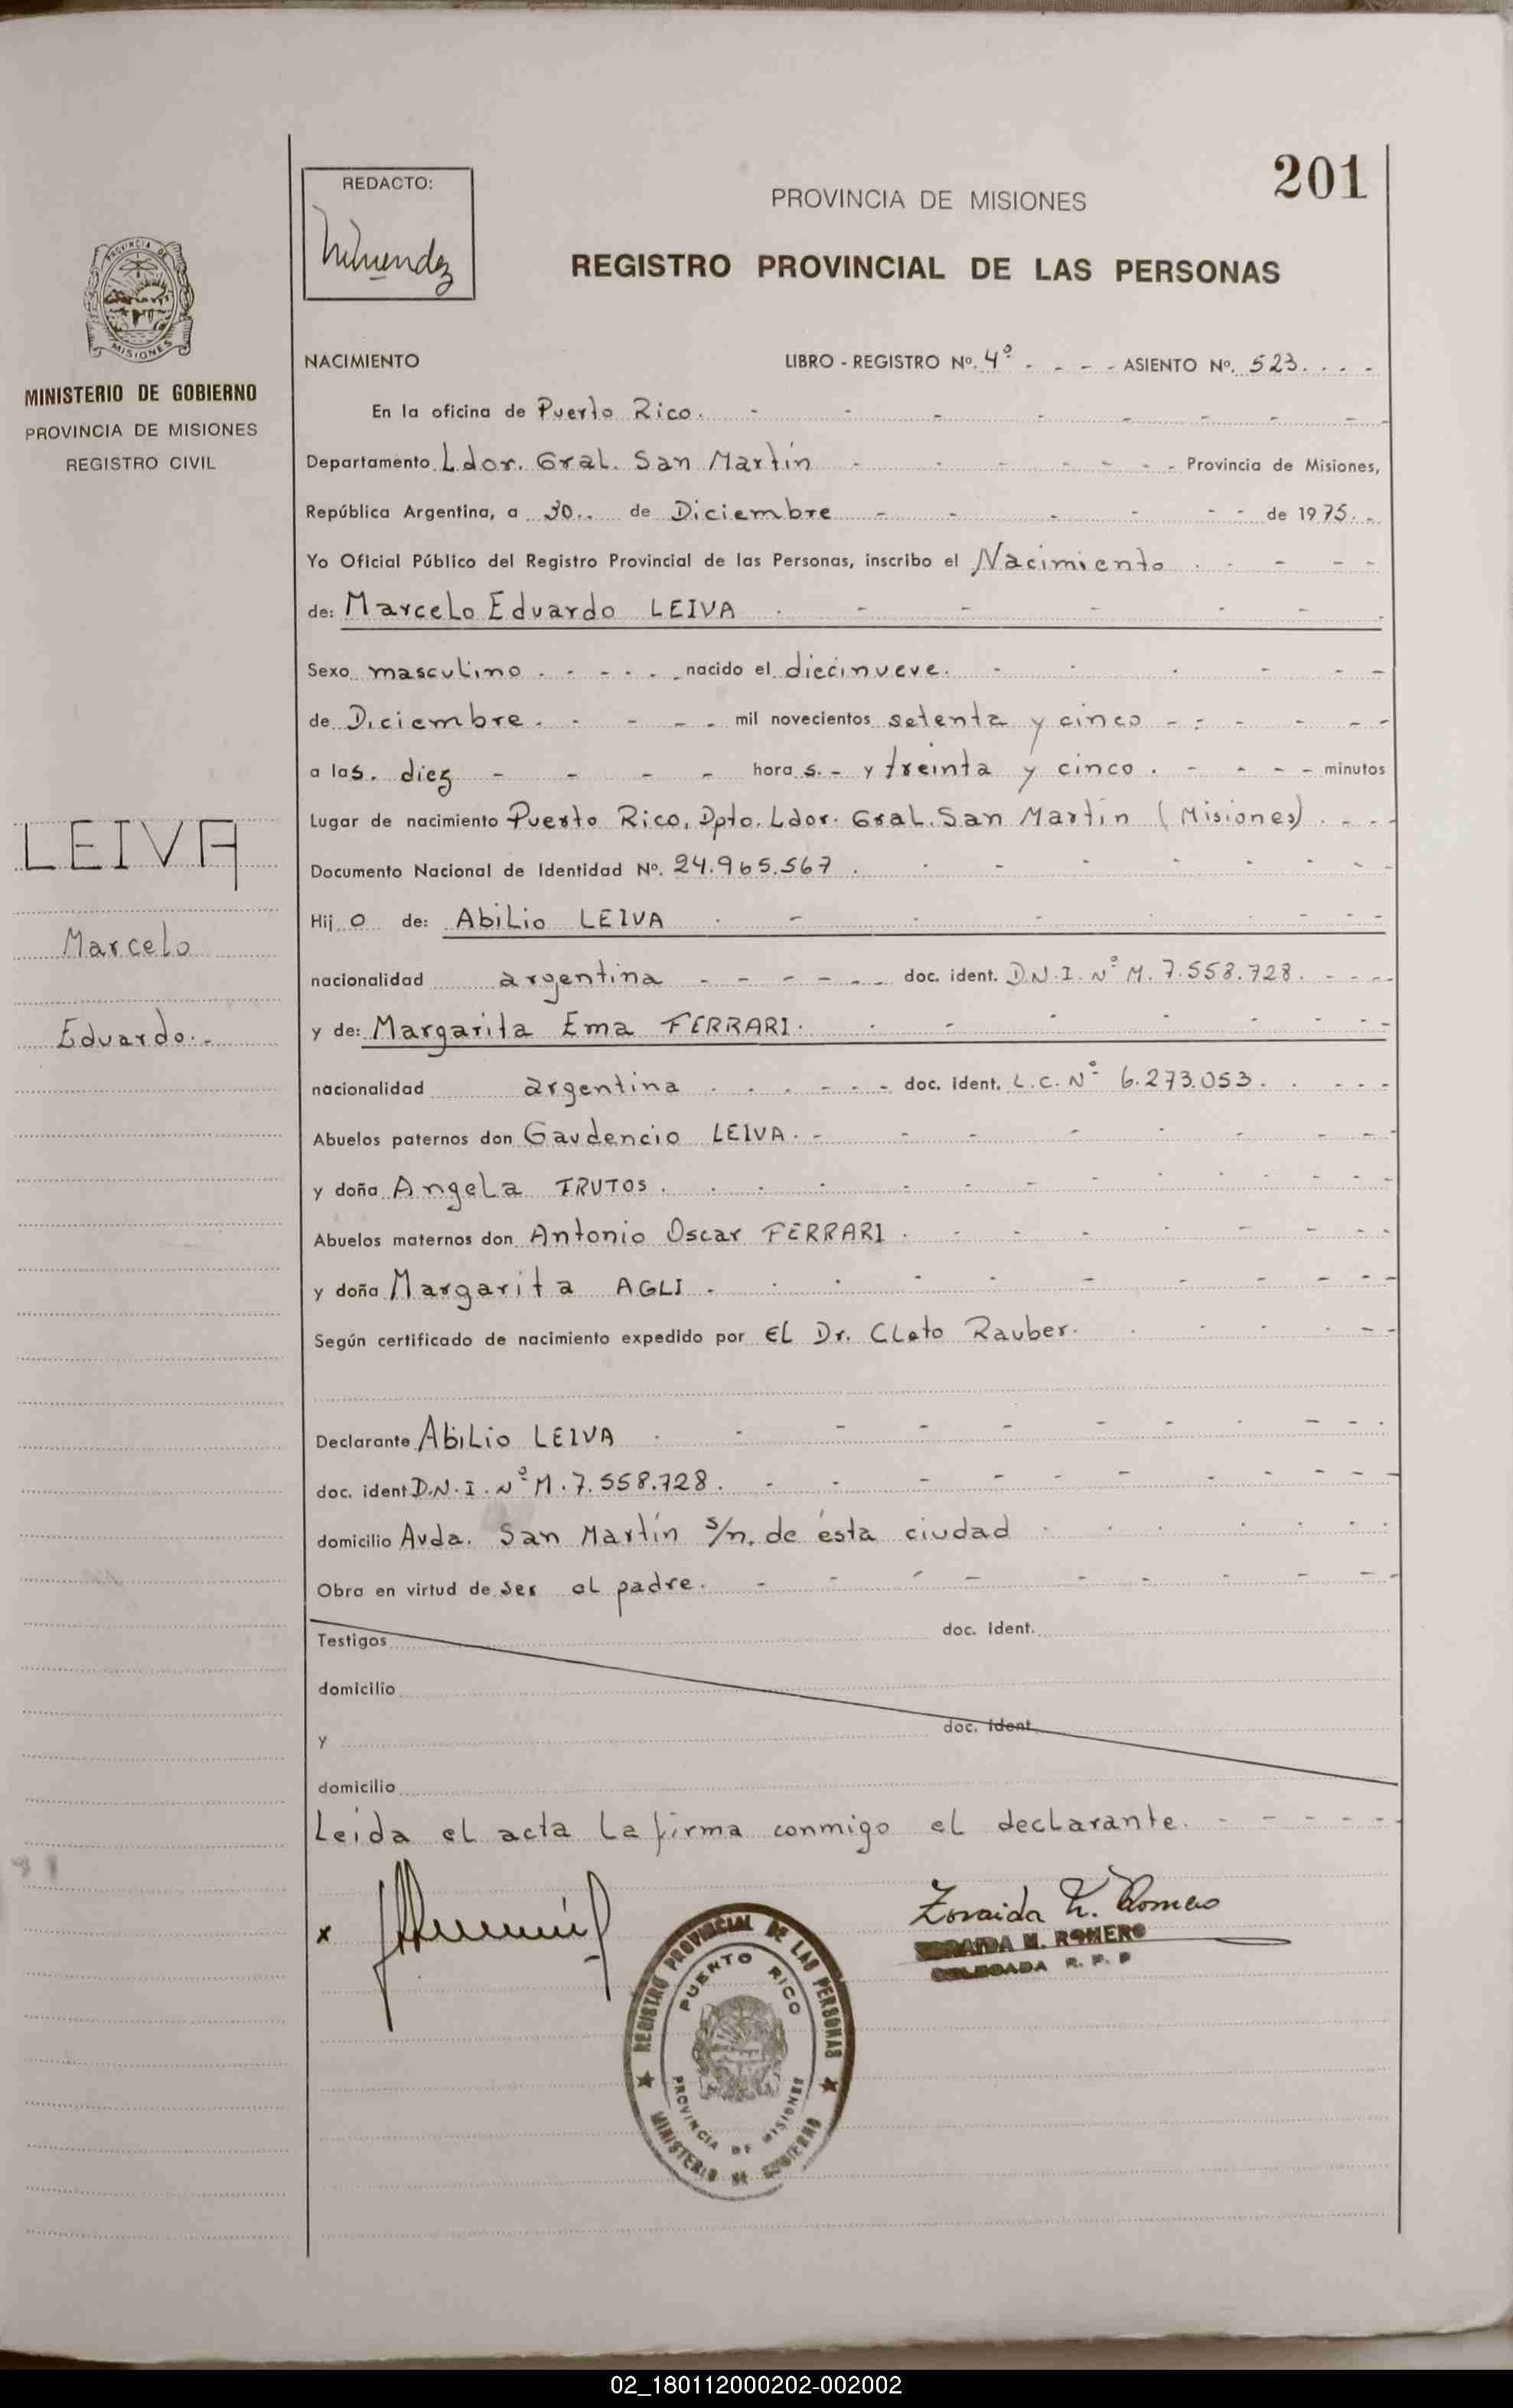 201
REDACTO:
PROVINCIA DE MISIONES
REGISTRO PROVINCIAL DE LAS PERSONAS
PROVINCIA DE
MISIONES
MINISTERIO DE GOBIERNO
PROVINCIA DE MISIONES
REGISTRO CIVIL
NACIMIENTO LIBRO - REGISTRO Nº. 4º - - - - ASIENTO Nº. 523. - - -
En la oficina de Puerto Rico.
Departamento Ldor. Gral. San Martín Provincia de Misiones,
República Argentina, a 30.. de Diciembre de 1975.-
Yo Oficial Público del Registro Provincial de las Personas, inscribo el Nacimiento
de: Marcelo Eduardo LEIVA
Sexo masculino nacido el diecinueve.
de Diciembre. mil novecientos setenta y cinco
a las. diez hora s.- y treinta y cinco. minutos
Lugar de nacimiento Puerto Rico, Dpto. Ldor. Gral. San Martín (Misiones)
LEIVA
Documento Nacional de Identidad Nº. 24.965.567.
Hij o de: Abilio LEIVA
Marcelo
nacionalidad argentina doc. ident. D.N.I. Nº M. 7.558.728.
Eduardo.-
y de: Margarita Ema FERRARI.
nacionalidad argentina doc. ident. L.C. Nº 6.273.053.
Abuelos paternos don Gaudencio LEIVA.-
y doña Angela FRUTOS.
Abuelos maternos don Antonio Oscar FERRARI
y doña Margarita AGLI.
Según certificado de nacimiento expedido por El Dr. Cleto Rauber.
Declarante Abilio LEIVA
doc. ident D.N.I. Nº M. 7.558.728.
domicilio Avda. San Martín s/n. de ésta ciudad
Obra en virtud de ser el padre.
Testigos doc. ident.
domicilio
y doc. ident.
domicilio
Leida el acta la firma conmigo el declarante.
x
Zoraida M. Romero
ZORAIDA M. ROMERO
DELEGADA R. P. P
REGISTRO PROVINCIAL DE LAS PERSONAS
PUERTO RICO
PROVINCIA DE MISIONES
MINISTERIO DE GOBIERNO
02_180112000202-002002